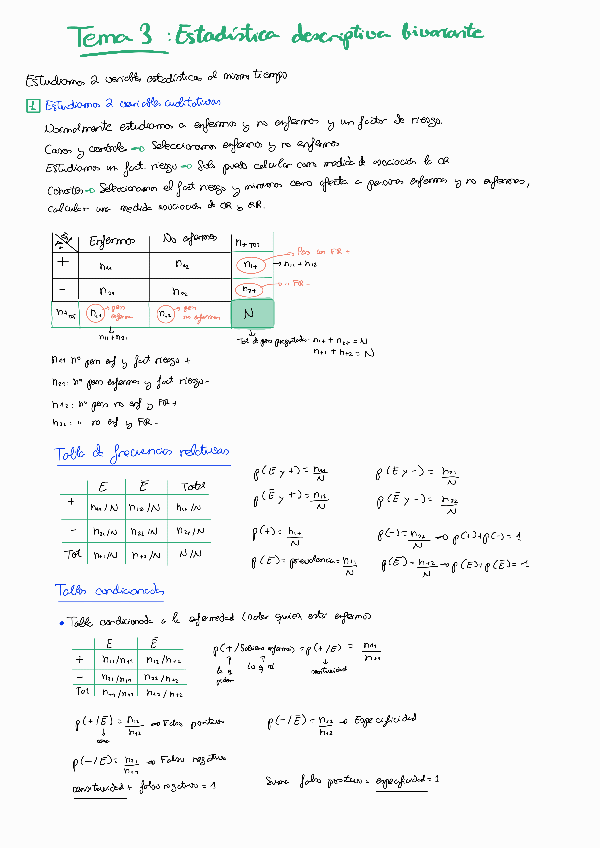 Tema 3 : Estadística descriptiva bivariante
Estudiamos 2 variables estadísticas al mismo tiempo
1 Estudiamos 2 variables cualitativas
Normalmente estudiamos a enfermos y no enfermos y un factor de riesgo.
Casos y controles → Seleccionamos enfermos y no enfermos
Estudiamos un fact. riesgo → Solo puedo calcular como medida de asociación la OR
Cohortes → Seleccionamos el fact riesgo y miramos como afecta a personas enfermas y no enfermas,
calcular una medida asociación de OR y RR.
Enfermos No enfermos n+tot
+ n11 n12 n1+ → n11 + n12
- n21 n22 n2+
n+tot n+1 n+2 N
n11+n21
n1+ + n2+ = N
n+1 + n+2 = N
n11: nº pers enf y fact riesgo +
n21: nº pers enfermas y fact riesgo -
n12: nº pers no enf y FR+
n22: " no enf y FR -
Tabla de frecuencias relativas
E Ē Total
+ n11/N n12/N n1+/N
- n21/N n22/N n2+/N
Tot n+1/N n+2/N N/N
p(E y +) = n11/N p(E y -) = n21/N
p(Ē y +) = n12/N p(Ē y -) = n22/N
p(+) = n1+/N p(-) = n2+/N → p(+)+p(-) = 1
p(E) = prevalencia = n+1/N p(Ē) = n+2/N → p(E)+p(Ē) = 1
Tablas condicionadas
• Tabla condicionada a la enfermedad (saber quien está enfermo)
E Ē
+ n11/n+1 n12/n+2
- n21/n+1 n22/n+2
Tot n+1/n+1 n+2/n+2
p(+/Sabiendo enfermos) = p(+/E) = n11/n+1
sensibilidad
p(+/Ē) = n12/n+2 → Falso positivo p(-/Ē) = n22/n+2 → Especificidad
p(-/E) = n21/n+1 → Falso negativo
sensibilidad + falso negativo = 1 Suma falso positivo + especificidad = 1